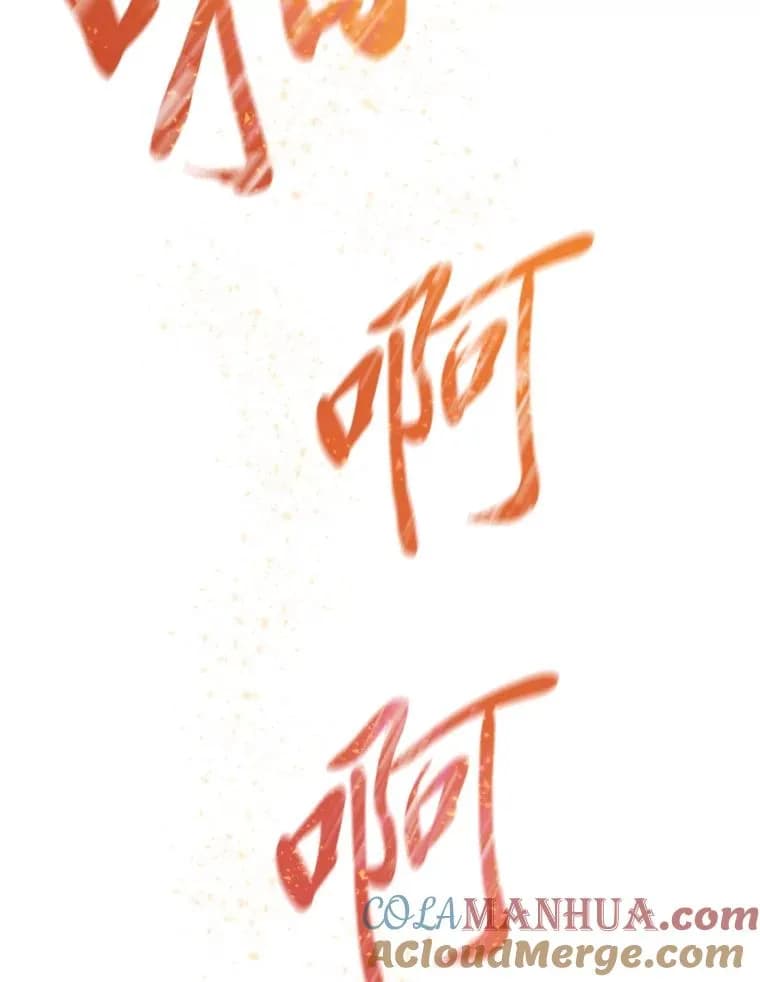 啊
啊
COLAMANHUA.com
ACloudMerge.com